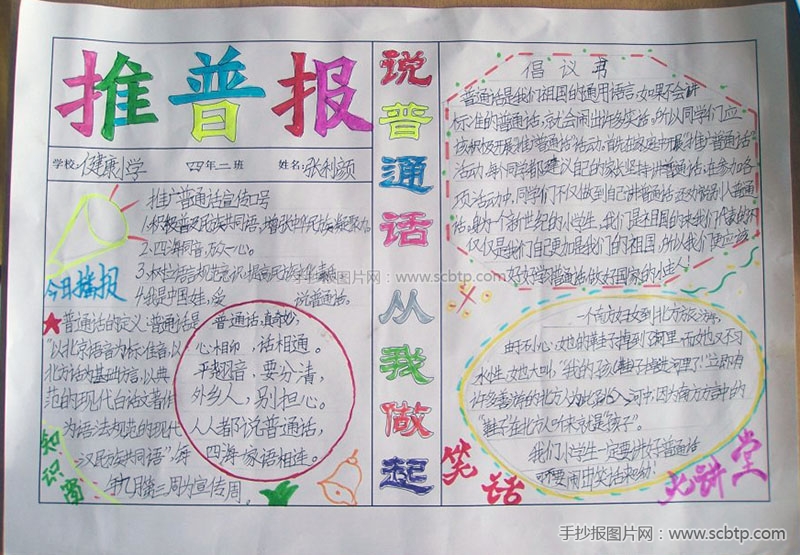 推普报
学校:健康小学 四年二班 姓名:张利颜
推广普通话宣传口号
1.积极普及民族共同语,增强中华民族凝聚力。
2.四海同音,万众一心。
3.树立语言规范意识,提高民族文化素质
4.我是中国娃,爱 说普通话。
今日播报
★普通话的定义:普通话是
"以北京语音为标准音,以
北方话为基础方言,以典
范的现代白话文著作
为语法规范的现代
汉民族共同语",每
年九月第三周为宣传周
知识窗
普通话,真奇妙,
心相印,话相通。
平翘音,要分清,
外乡人,别担心。
人人都说普通话,
四海家语相连。
说普通话从我做起
倡议书
普通话是我们祖国的通用语言,如果不会讲
标准的普通话,就会闹出许多笑话,所以同学们应
该积极开展推广普通话活动,首先在家庭中开展"推广普通话"
活动,每个同学都建议自己的家长坚持讲普通话,在参加各
项活动中,同学们不仅做到自己讲普通话还劝说别人讲普通
话,身为一个新世纪的小学生,我们是祖国的未来,我们代表的不
仅仅是我们自己更加是我们的祖国,所以我们更应该
好好学普通话,做好国家的小主人!
一个南方妇女到北方旅游,
由于不小心,她的鞋子掉到河里,而她又不习
水性,她大叫,"我的孩(鞋)子掉进河里了!"立即有
许多善游的北方人为此跳入河中,因为南方方言中的
"鞋子"在北方人听来就是"孩子"。
我们小学生一定要讲好普通话
不要闹出笑话来哟!
笑话大讲堂
手抄报图片网:www.scbtp.com
手抄报图片网:www.scbtp.com